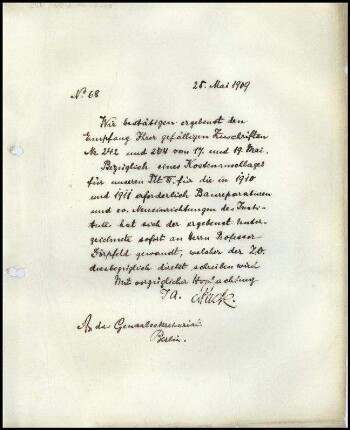 No 68
25. Mai 1909
Wir bestätigen ergebenst den
Empfang Ihrer gefälligen Zuschriften
Nr. 242 und 284 vom 17. und 19. Mai.
Bezüglich eines Kostenanschlages
für unseren für die in 1910
und 1911 erforderlich Baureparaturen
und ev. Neueinrichtungen des Insti-
tutes hat sich der ergebenst Unter-
zeichnete sofort an Herrn Professor
Dörpfeld gewandt, welcher der Z.D.
diesbezüglich direkt schreiben wird
Mit vorzüglicher Hochachtung
I A.
An das Generalsekretariat
Berlin.